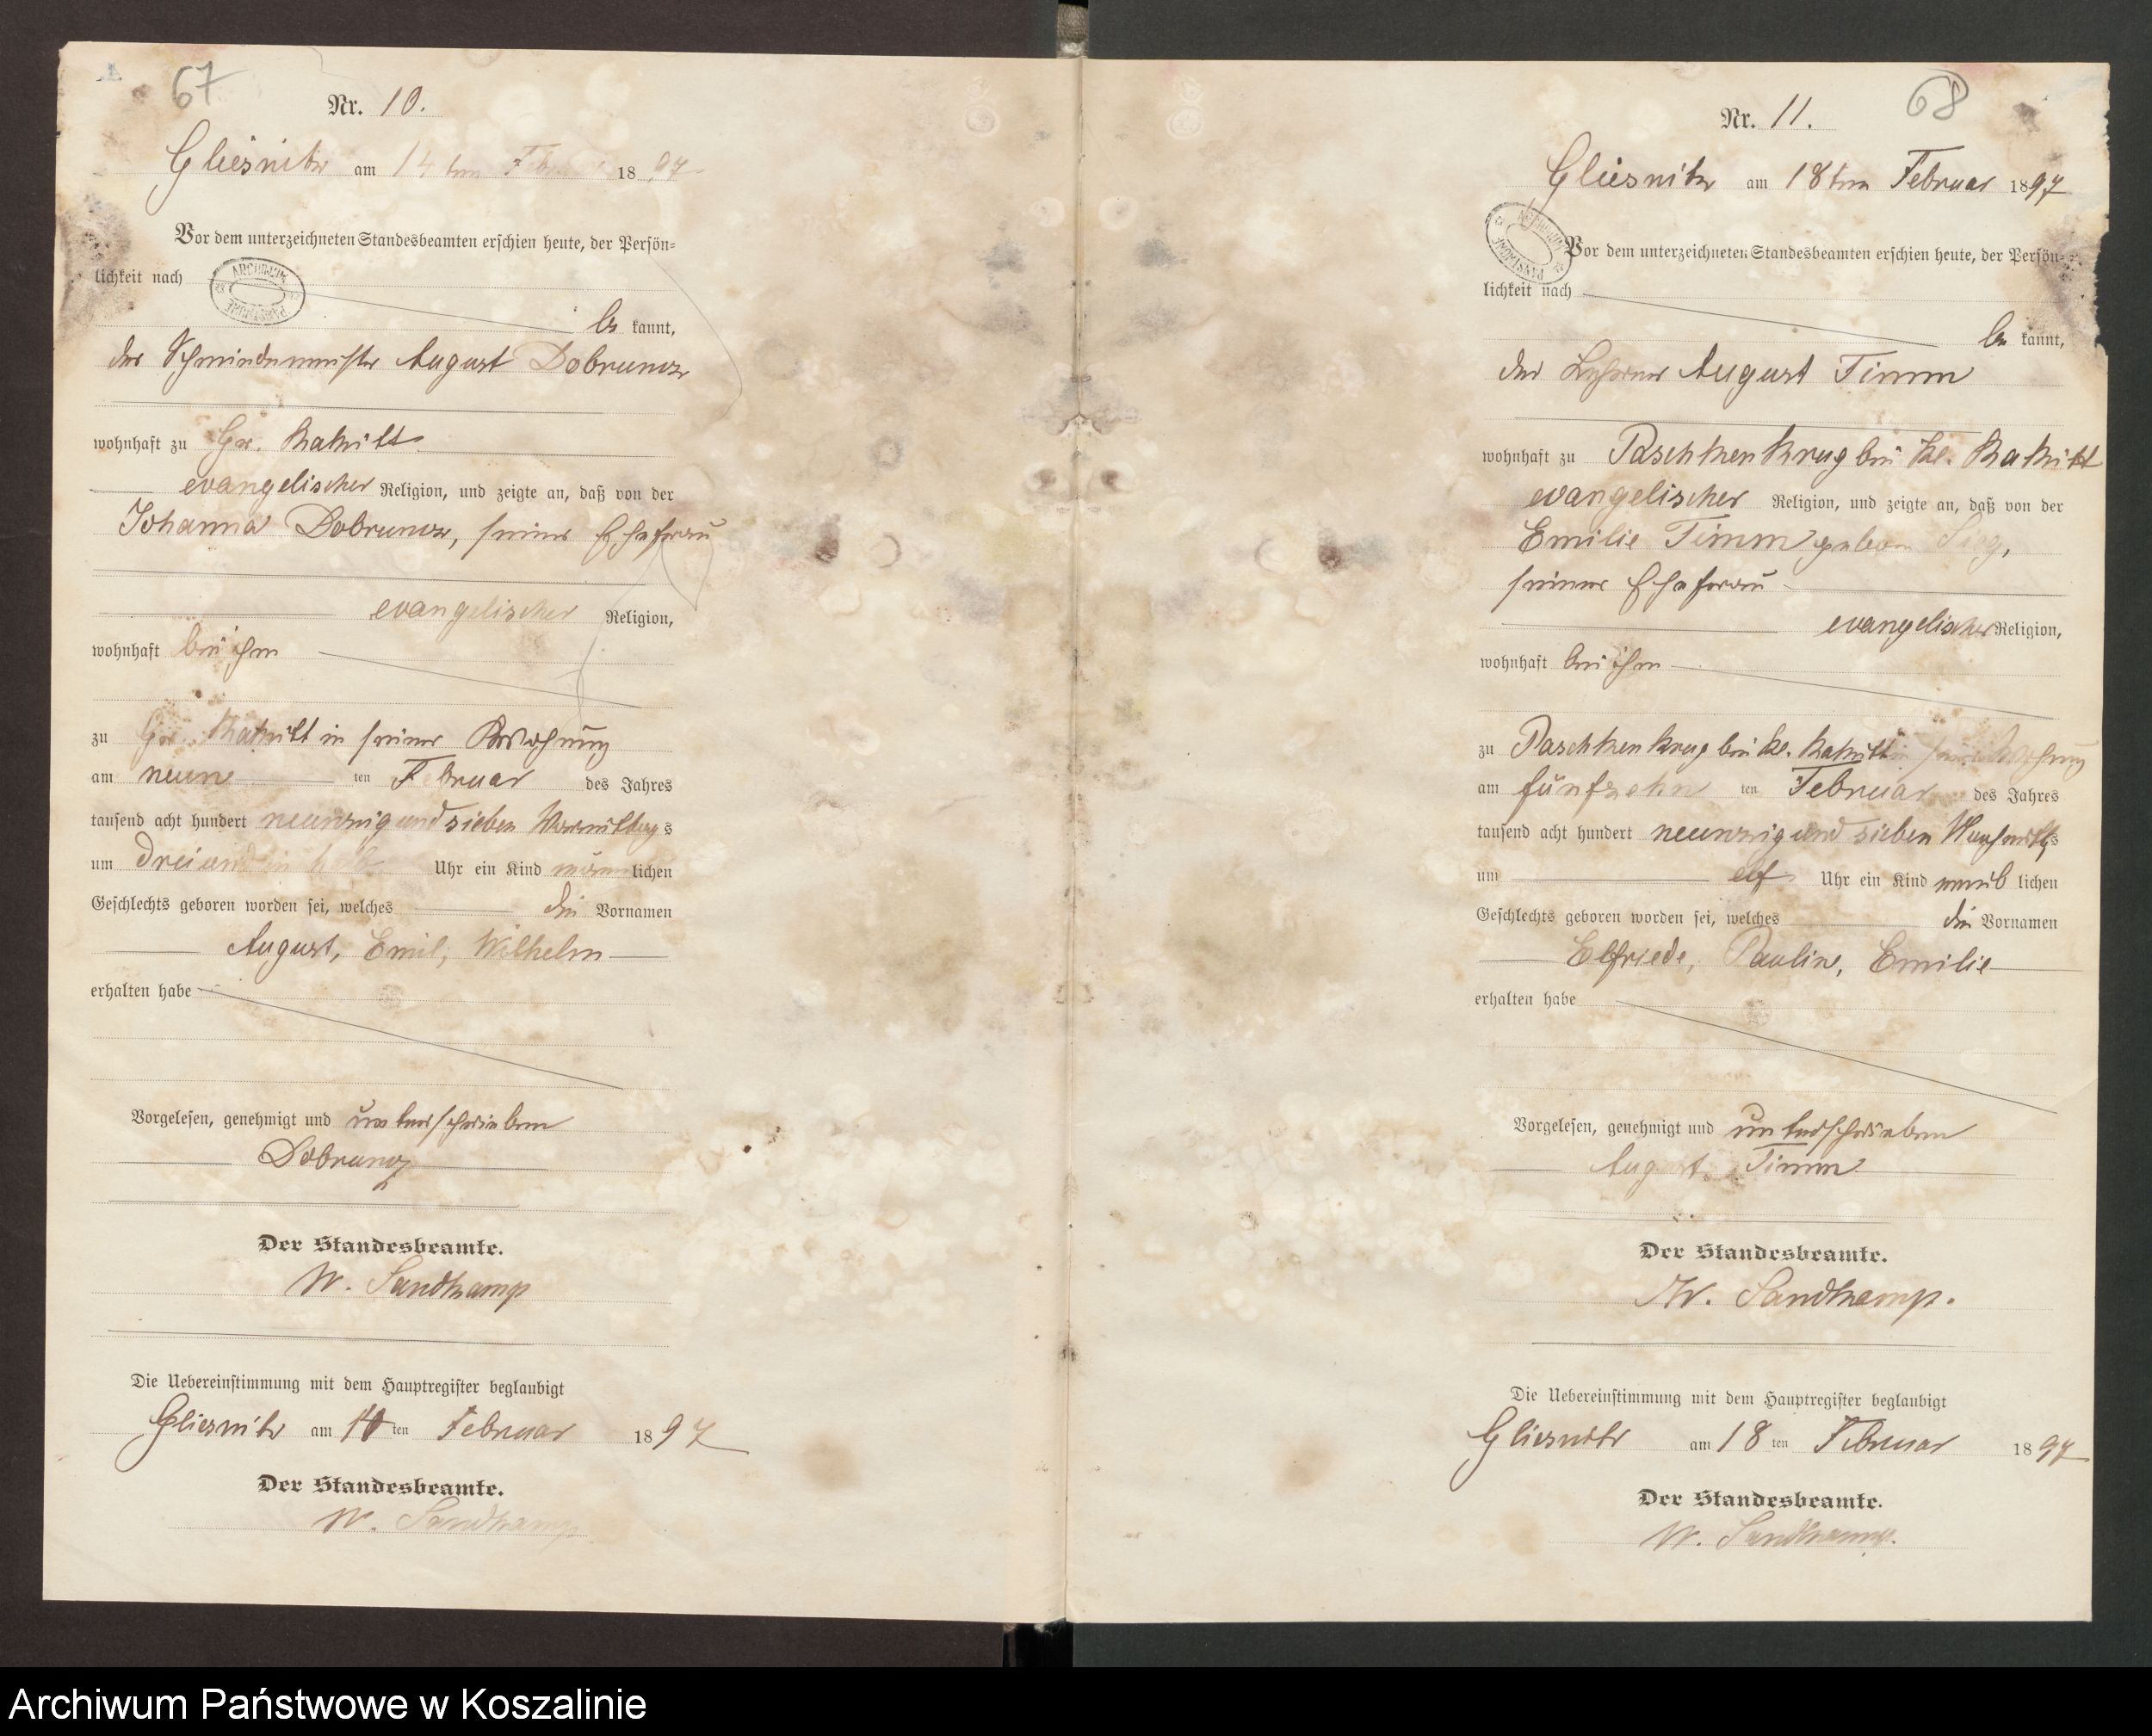 67
Nr. 10.
Gliesnitz am 14ten Februar 1897
Vor dem unterzeichneten Standesbeamten erschien heute, der Persön-
lichkeit nach
ARCHIWUM PAŃSTWOWE
be kannt,
der August Dobrunz
wohnhaft zu Gr. Rakitt
evangelischer Religion, und zeigte an, daß von der
Johanna Dobrunz, seiner Ehefrau
evangelischer Religion,
wohnhaft bei ihm
zu Gr. Rakitt in seiner Wohnung
am neun ten Februar des Jahres
tausend acht hundert neunzig und sieben Vormittags
um drei und ein halb Uhr ein Kind männlichen
Geschlechts geboren worden sei, welches die Vornamen
August, Emil, Wilhelm
erhalten habe
Vorgelesen, genehmigt und unterschrieben
Dobrunz
Der Standesbeamte.
W. Sandkamp
Die Uebereinstimmung mit dem Hauptregister beglaubigt
Gliesnitz am ten Februar 1897
Der Standesbeamte.
W. Sandkamp
68
Nr. 11.
Gliesnitz am 18ten Februar 1897
ARCHIWUM PAŃSTWOWE
Vor dem unterzeichneten Standesbeamten erschien heute, der Persön-
lichkeit nach
be kannt,
der Lehrer August Timm
wohnhaft zu Paschken Krug bei Kl. Rakitt
evangelischer Religion, und zeigte an, daß von der
Emilie Timm geborn
seiner Ehefrau
evangelischer Religion,
wohnhaft bei ihm
zu Paschken Krug bei Kl. Rakitt in seiner Wohnung
am fünfzehn ten Februar des Jahres
tausend acht hundert neunzig und sieben Nachmittags
um elf Uhr ein Kind weib lichen
Geschlechts geboren worden sei, welches die Vornamen
Elfriede, Pauline, Emilie
erhalten habe
Vorgelesen, genehmigt und unterschrieben
August Timm
Der Standesbeamte.
W. Sandkamp.
Die Uebereinstimmung mit dem Hauptregister beglaubigt
Gliesnitz am 18 ten Februar 1897
Der Standesbeamte.
W. Sandkamp.
Archiwum Państwowe w Koszalinie